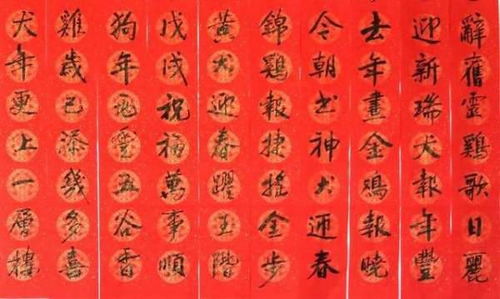 辭舊靈鷄歌日麗
迎新瑞犬報年豐
去年畫金鷄報曉
今朝书神犬迎春
錦鷄報捷搖金步
黃犬迎春躍玉階
戊戌祝福萬事順
狗年飛雲五谷香
雞歲已添幾多喜
犬年更上一層樓